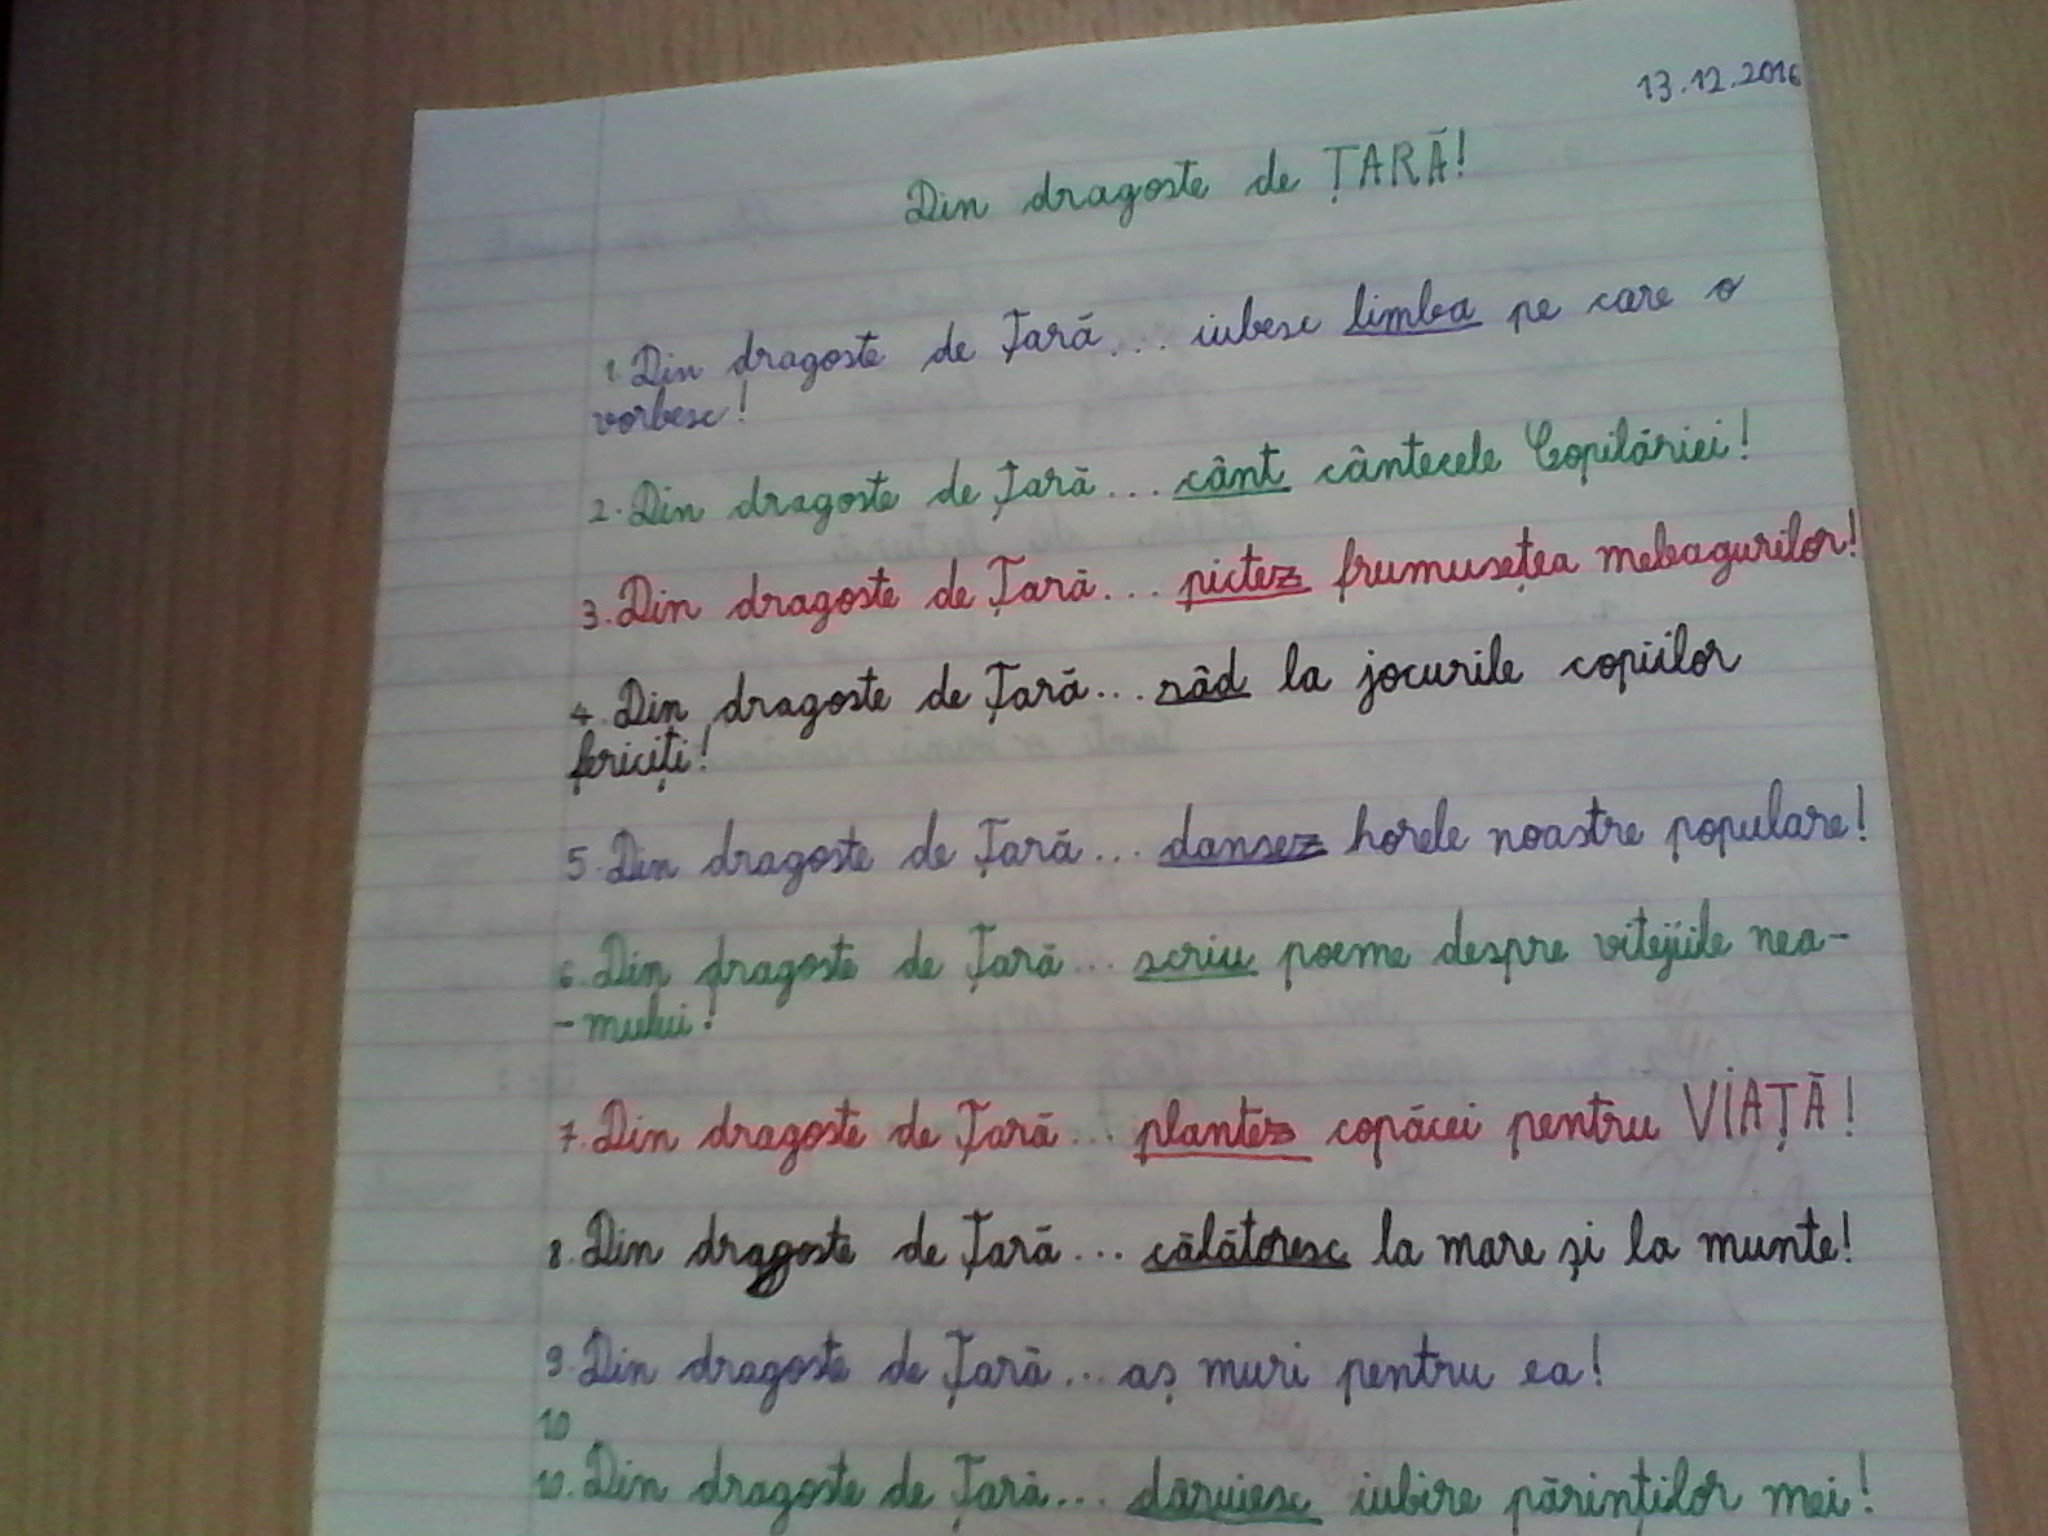 13.12.2016
Din dragoste de ȚARĂ!
1. Din dragoste de Țară... iubesc limba pe care o
vorbesc!
2. Din dragoste de Țară... cânt cântecele Copilăriei!
3. Din dragoste de Țară... pictez frumusețea meleagurilor!
4. Din dragoste de Țară... râd la jocurile copiilor
fericiți!
5. Din dragoste de Țară... dansez horele noastre populare!
6. Din dragoste de Țară... scriu poeme despre vitejiile nea-
-mului!
7. Din dragoste de Țară... plantez copăcei pentru VIAȚĂ!
8. Din dragoste de Țară... călătoresc la mare și la munte!
9. Din dragoste de Țară... aș muri pentru ea!
10
10. Din dragoste de Țară... dăruiesc iubire părinților mei!